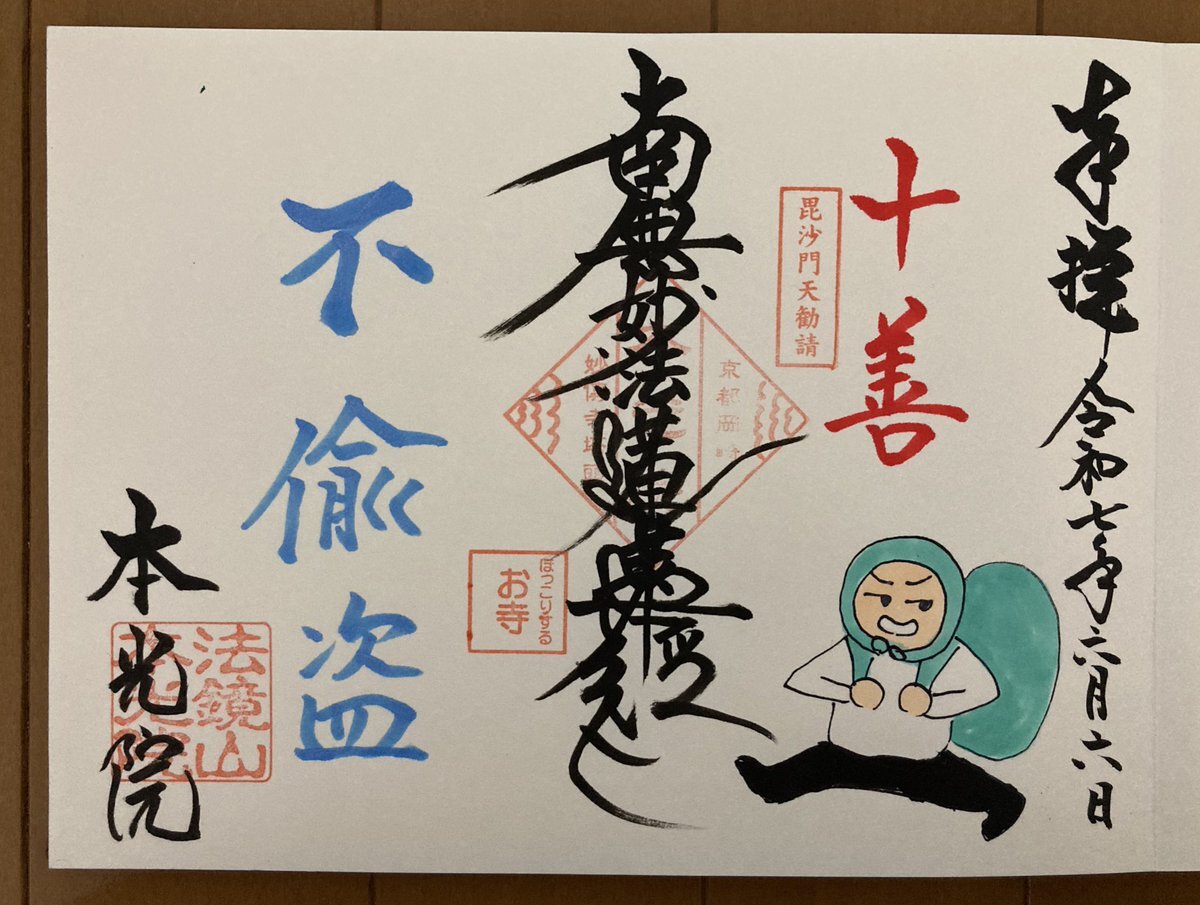 奉拝 令和七年六月六日
十善
毘沙門天勧請
南無妙法蓮華経
京都岡
ほっこりする
お寺
不偸盗
本光院
法鏡山
本光院